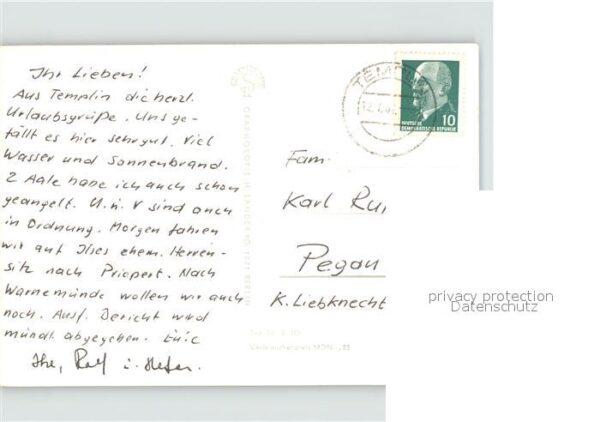 Ihr Lieben!
Aus Templin die herzl.
Urlaubsgrüße. Uns ge-
fällt es hier sehr gut. Viel
Wasser und Sonnenbrand.
2 Aale habe ich auch schon
geangelt. U. u. V sind auch
in Ordnung. Morgen fahren
wir auf Ilses ehem. Herren-
sitz nach Priepert. Nach
Warnemünde wollen wir auch
noch. Ausf. Bericht wird
mündl. abgegeben.
Ihr, Ralf
TEMPLIN
10
DEUTSCHE
DEMOKRATISCHE REPUBLIK
Fam.
Karl
Pegau
K. Liebknecht
privacy protection
Datenschutz